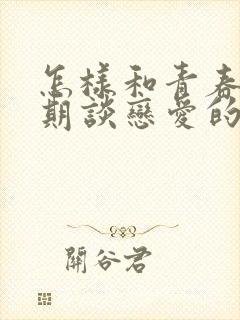 怎樣和青春
期談戀愛的
關谷君